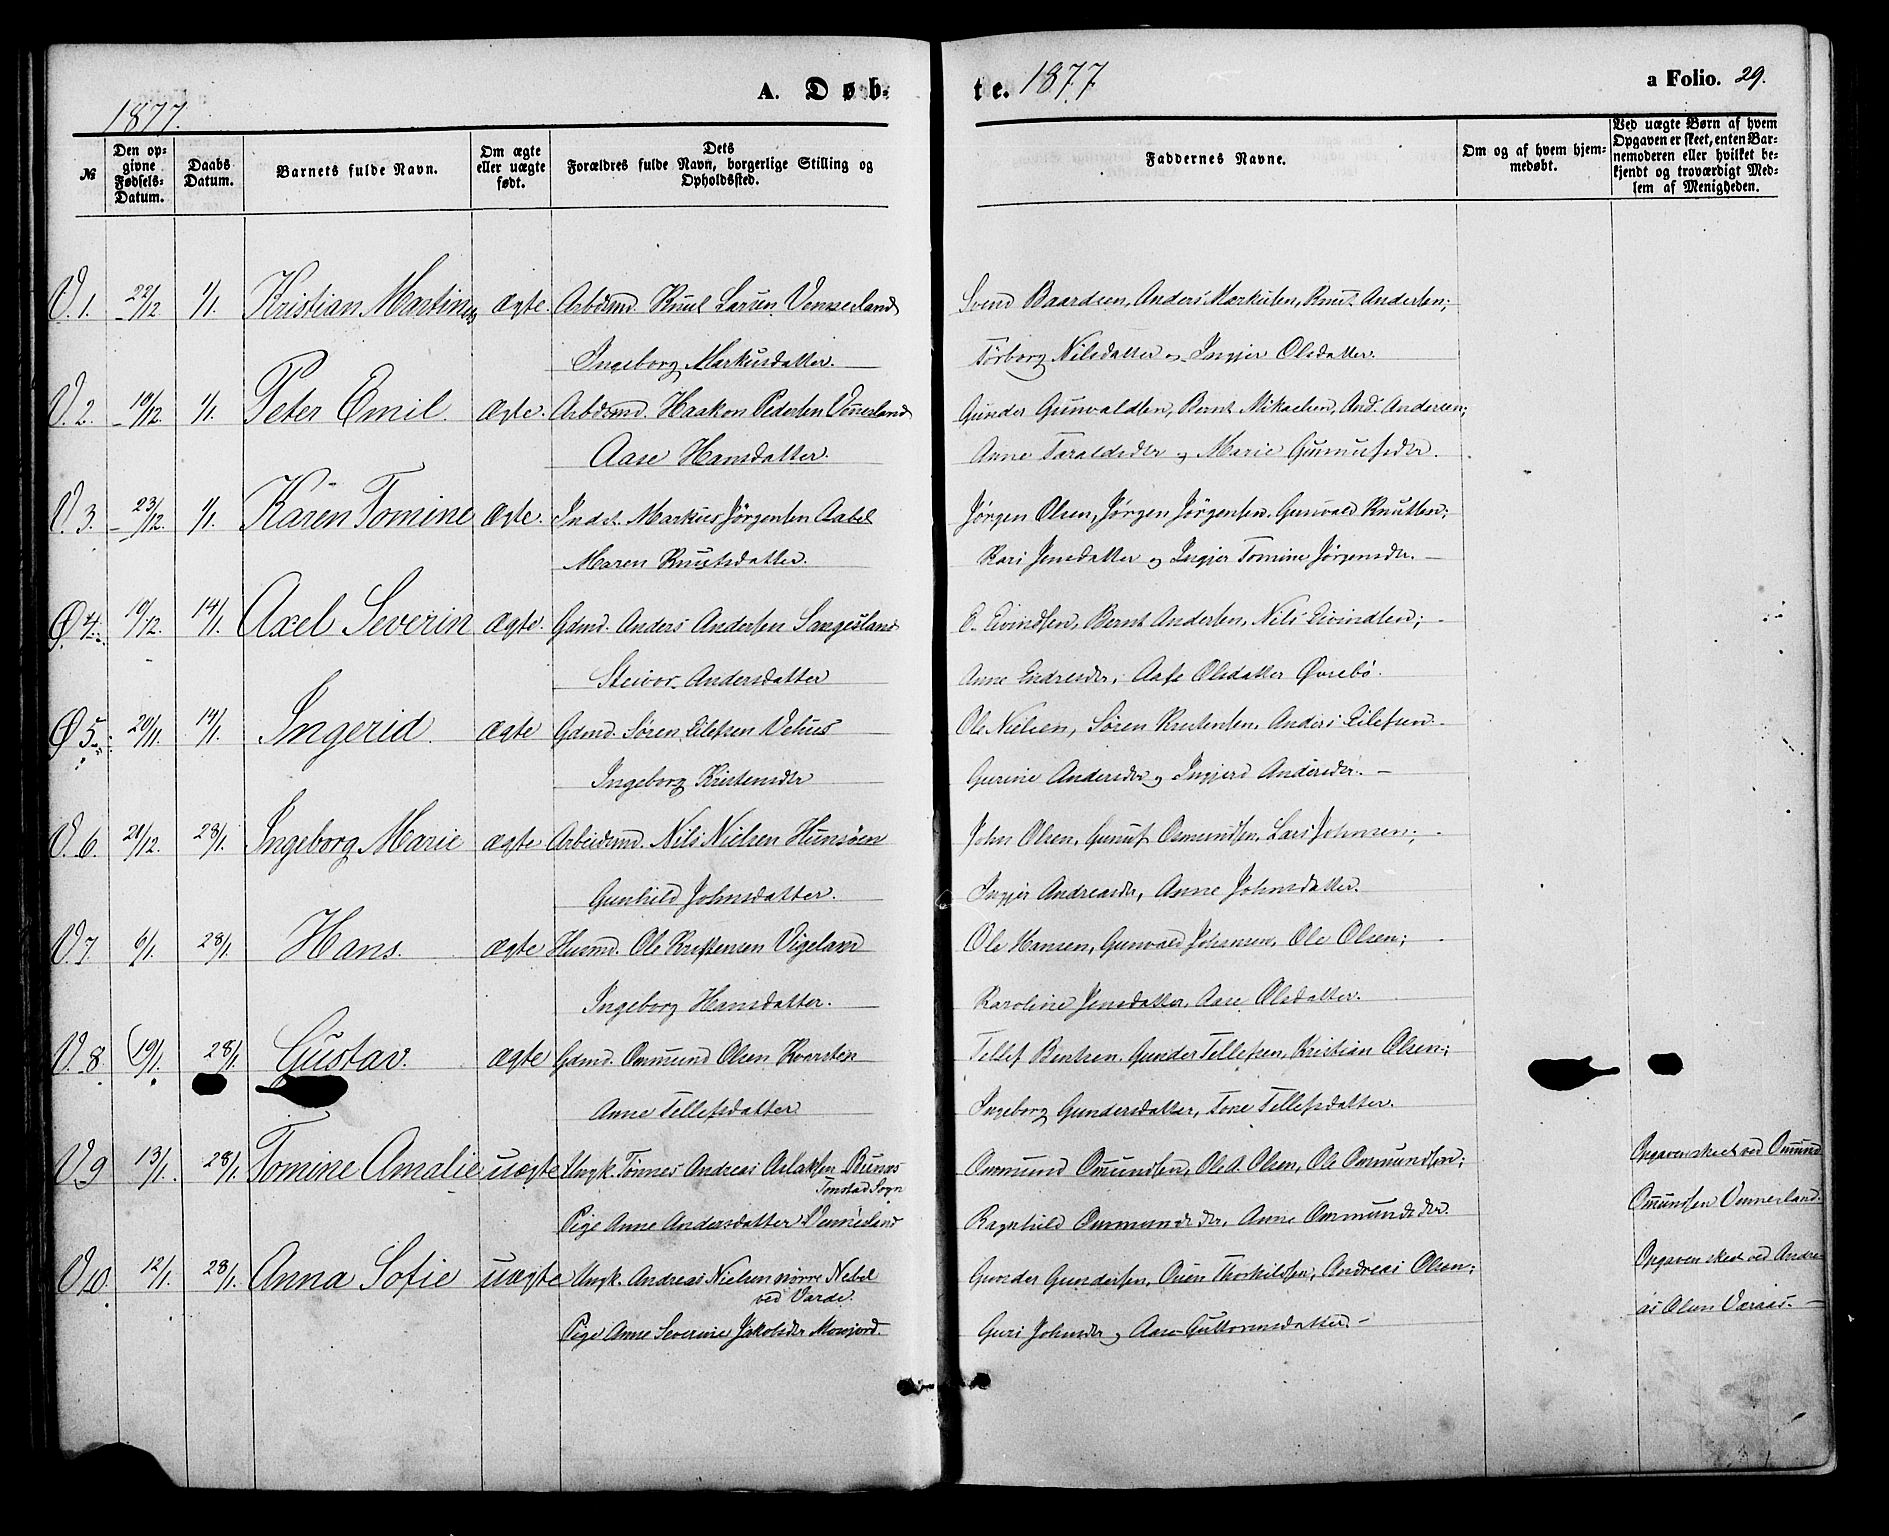 1877.
A. Døb-
te. 1877
a Folio. 29.
№
Den op-
givne
Fødsels-
Datum.
Daabs
Datum.
Barnets fulde Navn.
Om ægte
eller uægte
født.
Dets
Forældres fulde Navn, borgerlige Stilling og
Opholdssted.
Faddernes Navne.
Om og af hvem hjem-
medøbt.
Ved uægte Børn af hvem
Opgaven er skeet, enten Bar-
nemoderen eller hvilket be-
kjendt og troværdigt Med-
lem af Menigheden.
V. 1. 22/12 1/1. Kristian Martinus ægte. Arbdsmd. Knut Larsen Vennesland Svend Baardsen, Anders Markusen, Knut Andersen;
Ingeborg Markusdatter. Torborg Nilsdatter og Ingjer Olsdatter.
V. 2. 10/12. 1/1. Peter Emil. ægte. Arbdsmd. Haakon Pedersen Vennesland Gunder Gunvaldsen, Bernt Mikaelsen, And. Andersen;
Aase Hansdatter. Anne Taraldsdtr og Marie Gunnufsdtr.
V. 3. 23/12. 1/1. Karen Tomine ægte. Indst. Markus Jörgensen Aabel Jørgen Olsen, Jørgen Jörgensen, Gunvald Knutsen;
Maren Knutsdatter. Kari Jensdatter og Ingjer Tomine Jörgensdr.
Ø 4. 10/12. 14/1. Axel Severin ægte. Gdmd. Anders Andersen Sangesland E. Eivindsen, Bernt Andersen, Nils Eivindsen;
Steivor Andersdatter Anne Endresdr, Aase Olsdatter Øvrebö.
Ø 5. 20/11. 14/1. Ingerid. ægte Gdmd. Søren Eilefsen Vehus Ole Nielsen, Søren Kristensen, Anders Eilefsen
Ingeborg Kristensdtr Gurine Andersdtr og Ingjerd Andersdtr.
V. 6. 21/12. 28/1. Ingeborg Marie ægte Arbeidsmd. Nils Nielsen Hunsöen John Olsen, Gunuf Osmundsen, Lars Johnsen;
Gunhild Johnsdatter. Ingjer Andreasdr, Anne Johnsdatter.
V. 7. 6/1. 28/1. Hans. ægte Husmd. Ole Kristensen Vigeland Ole Hansen, Gunvald Johansen, Ole Olsen;
Ingeborg Hansdatter. Karoline Jensdatter, Aase Olsdatter.
V. 8. 19/1. 28/1. Gustav. ægte Gdmd. Ommund Olsen Kvarsten Tellef Bentsen, Gunder Tellefsen, Kristian Olsen;
Anne Tellefsdatter Ingeborg Gundersdatter, Tone Tellefsdatter.
V. 9 13/1. 28/1. Tomine Amalie uægte Ungk. Tönnes Andreas Aslaksen Bunes Ommund Omundsen, Ole A. Olsen, Ole Ommundsen; Opgaven skeet ved Omund
Tonstad Sogn
Pige Anne Andersdatter Vennesland Ragnhild Ommundsdr, Anne Ommundsdr. Omundsen Vennesland.
V. 10. 12/1. 28/1. Anna Sofie uægte Ungk. Andreas Nielsen nörre Nebel Gunder Gundersen, Thorkildsen, Andreas Olsen; Opgaven skeet ved Andre-
ved Varde.
Pige Anne Severine Jakobsdtr Mosjord. Guri Johnsdr og Aase Guttormsdatter. as Olsen Varaas.